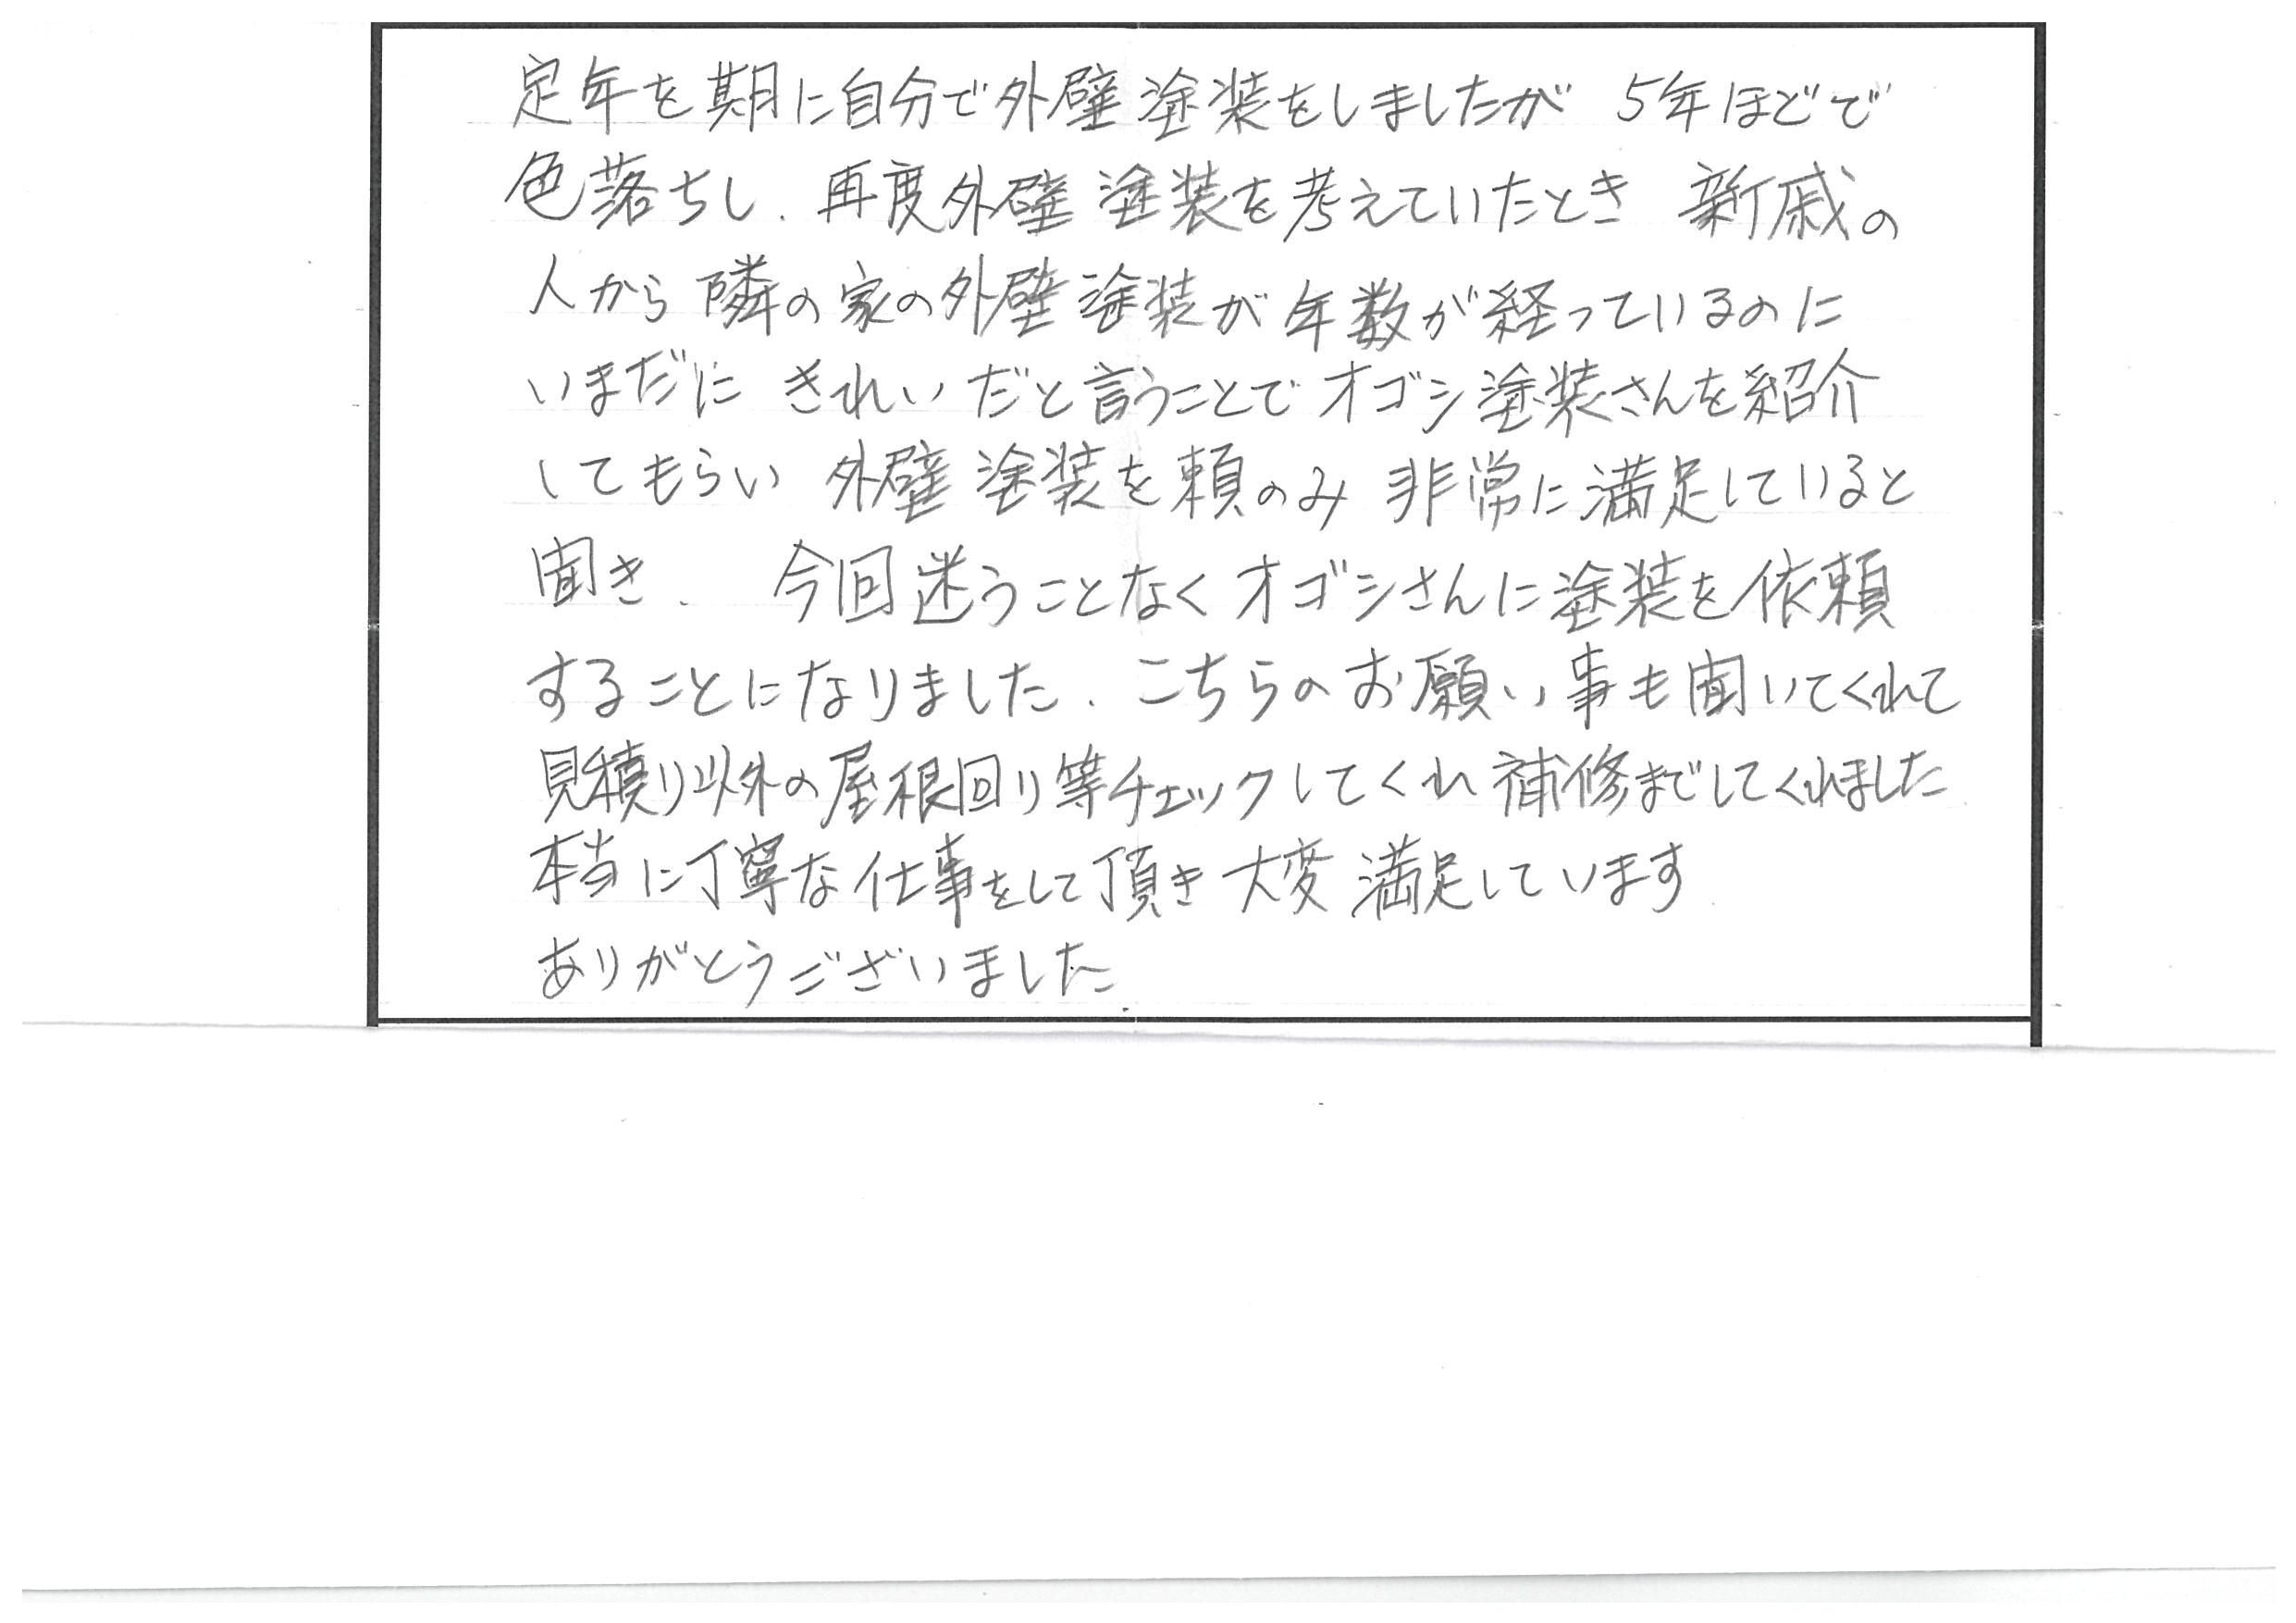 定年を期に自分で外壁塗装をしましたが 5年ほどで
色落ちし、再度外壁塗装を考えていたとき 新戚の
人から隣の家の外壁塗装が年数が経っているのに
いまだに きれいだと言うことでオゴシ塗装さんを紹介
してもらい 外壁塗装を頼のみ 非常に満足していると
聞き、 今回迷うことなくオゴシさんに塗装を依頼
することになりました、こちらのお願い事も聞いてくれて
見積り以外の屋根回り等チェックしてくれ補修までしてくれました
本当に丁寧な仕事をして頂き大変満足しています
ありがとうございました